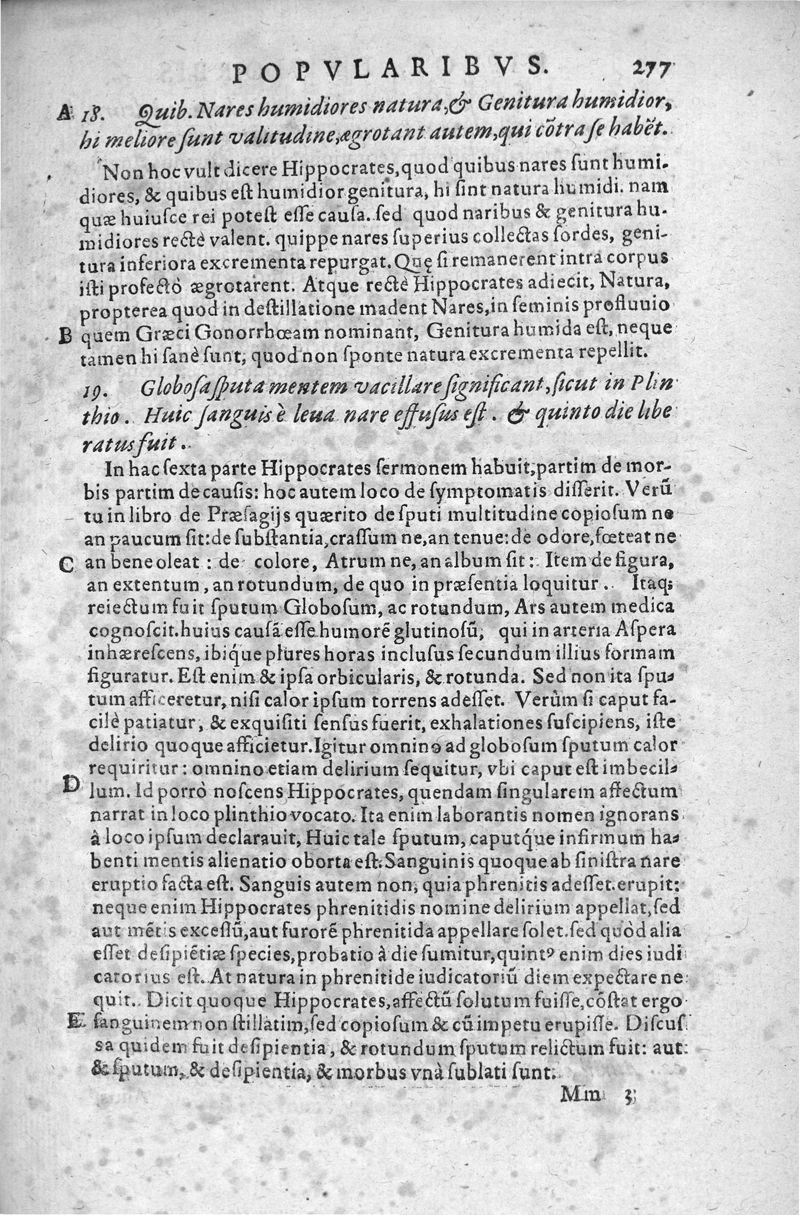 POPVLARIBVS. 277
A 18. Quib. Nares humidiores natura, & Genitura humidior,
hi meliore ſunt valitudine, ægrotant autem, qui cõtra ſe habẽt.
Non hoc vult dicere Hippocrates, quod quibus nares ſunt humi-
diores, & quibus eſt humidior genitura, hi ſint natura humidi. nam
quæ huiuſce rei poteſt eſſe cauſa. ſed quod naribus & genitura hu-
midiores rectè valent. quippe nares ſuperius collectas ſordes, geni-
tura inferiora excrementa repurgat. Quę ſi remanerent intra corpus
iſti profectò ægrotarent. Atque rectè Hippocrates adiecit, Natura,
propterea quod in deſtillatione madent Nares, in ſeminis profluuio
B quem Græci Gonorrhœam nominant, Genitura humida eſt, neque
tamen hi ſanè ſunt, quod non ſponte natura excrementa repellit.
19. Globoſa ſputa mentem vacillare ſignificant, ſicut in Plin
thio. Huic ſanguis è leua nare effuſus eſt. & quinto die libe
ratus fuit.
In hac ſexta parte Hippocrates ſermonem habuit, partim de mor-
bis partim de cauſis: hoc autem loco de ſymptomatis differit. Verũ
tu in libro de Præſagijs quærito de ſputi multitudine copioſum ne
an paucum ſit: de ſubſtantia, craſſum ne, an tenue: de odore, fœteat ne
C an bene oleat: de colore, Atrum ne, an album ſit: Item de figura,
an extentum, an rotundum, de quo in præſentia loquitur. Itaq;
reiectum fuit ſputum Globoſum, ac rotundum, Ars autem medica
cognoſcit. huius cauſã eſſe humorẽ glutinoſũ, qui in arteria Aſpera
inhæreſcens, ibíque plures horas incluſus ſecundum illius formam
figuratur. Eſt enim & ipſa orbicularis, & rotunda. Sed non ita ſpu-
tum afficeretur, niſi calor ipſum torrens adeſſet. Verùm ſi caput fa-
cilè patiatur, & exquiſiti ſenſus fuerit, exhalationes ſuſcipiens, iſte
delirio quoque afficietur. Igitur omnino ad globoſum ſputum calor
requiritur: omnino etiam delirium ſequitur, vbi caput eſt imbecil-
D lum. Id porrò noſcens Hippocrates, quendam ſingularem affectum
narrat in loco plinthio vocato. Ita enim laborantis nomen ignorans
à loco ipſum declarauit, Huic tale ſputum, caputq́ue infirmum ha-
benti mentis alienatio oborta eſt. Sanguinis quoque ab ſiniſtra nare
eruptio facta eſt. Sanguis autem non, quia phrenitis adeſſet. erupit:
neque enim Hippocrates phrenitidis nomine delirium appellat, ſed
aut mẽtis exceſſũ, aut furorẽ phrenitida appellare ſolet. ſed quòd alia
eſſet deſipiẽtiæ ſpecies, probatio à die ſumitur, quintꝰ enim dies iudi
catorius eſt. At natura in phrenitide iudicatoriũ diem expectare ne
quit. Dicit quoque Hippocrates, affectũ ſolutum fuiſſe, cõſtat ergo
E ſanguinem non ſtillatim, ſed copioſum & cũ impetu erupiſſe. Diſcuſ
ſa quidem fuit deſipientia, & rotundum ſputum relictum fuit: aut
& ſputum, & deſipientia, & morbus vnà ſublati ſunt.
Mm 3